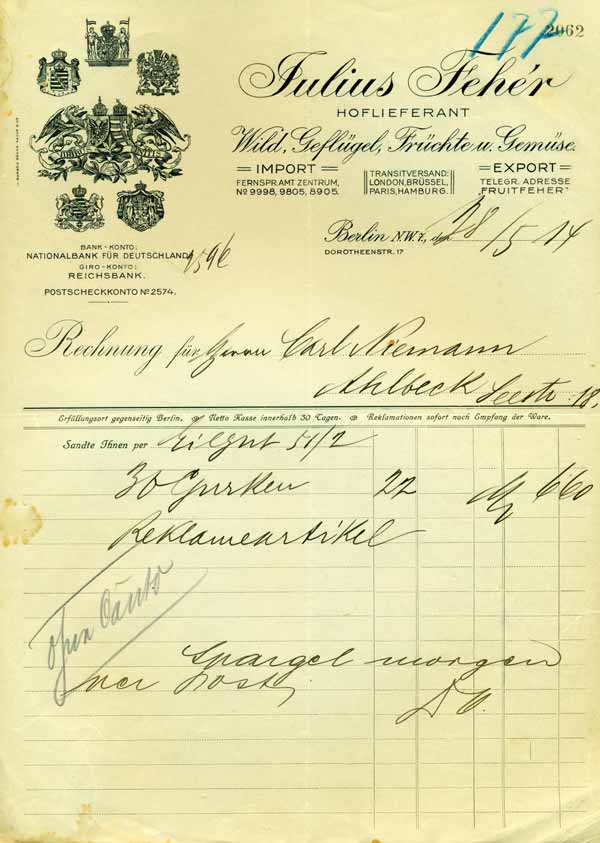 177
2062
Julius Fehér
HOFLIEFERANT
Wild, Geflügel, Früchte u. Gemüse.
IMPORT
EXPORT
FERNSPR. AMT ZENTRUM,
No 9998, 9805, 8905.
TRANSITVERSAND:
LONDON, BRÜSSEL,
PARIS, HAMBURG.
TELEGR. ADRESSE
"FRUITFEHER"
Berlin N.W.7, den 28/5 14
DOROTHEENSTR. 17
BANK-KONTO:
NATIONALBANK FÜR DEUTSCHLAND
GIRO-KONTO:
REICHSBANK.
POSTSCHECKKONTO No 2574.
Rechnung für Herrn Carl Niemann
Ahlbeck Seestr. 18.
Erfüllungsort gegenseitig Berlin. Netto Kasse innerhalb 30 Tagen. Reklamationen sofort nach Empfang der Ware.
Sandte Ihnen per Eilgut 51/2
30 Gurken 22 M 660
Reklameartikel
Spargel morgen
per Post
D O.